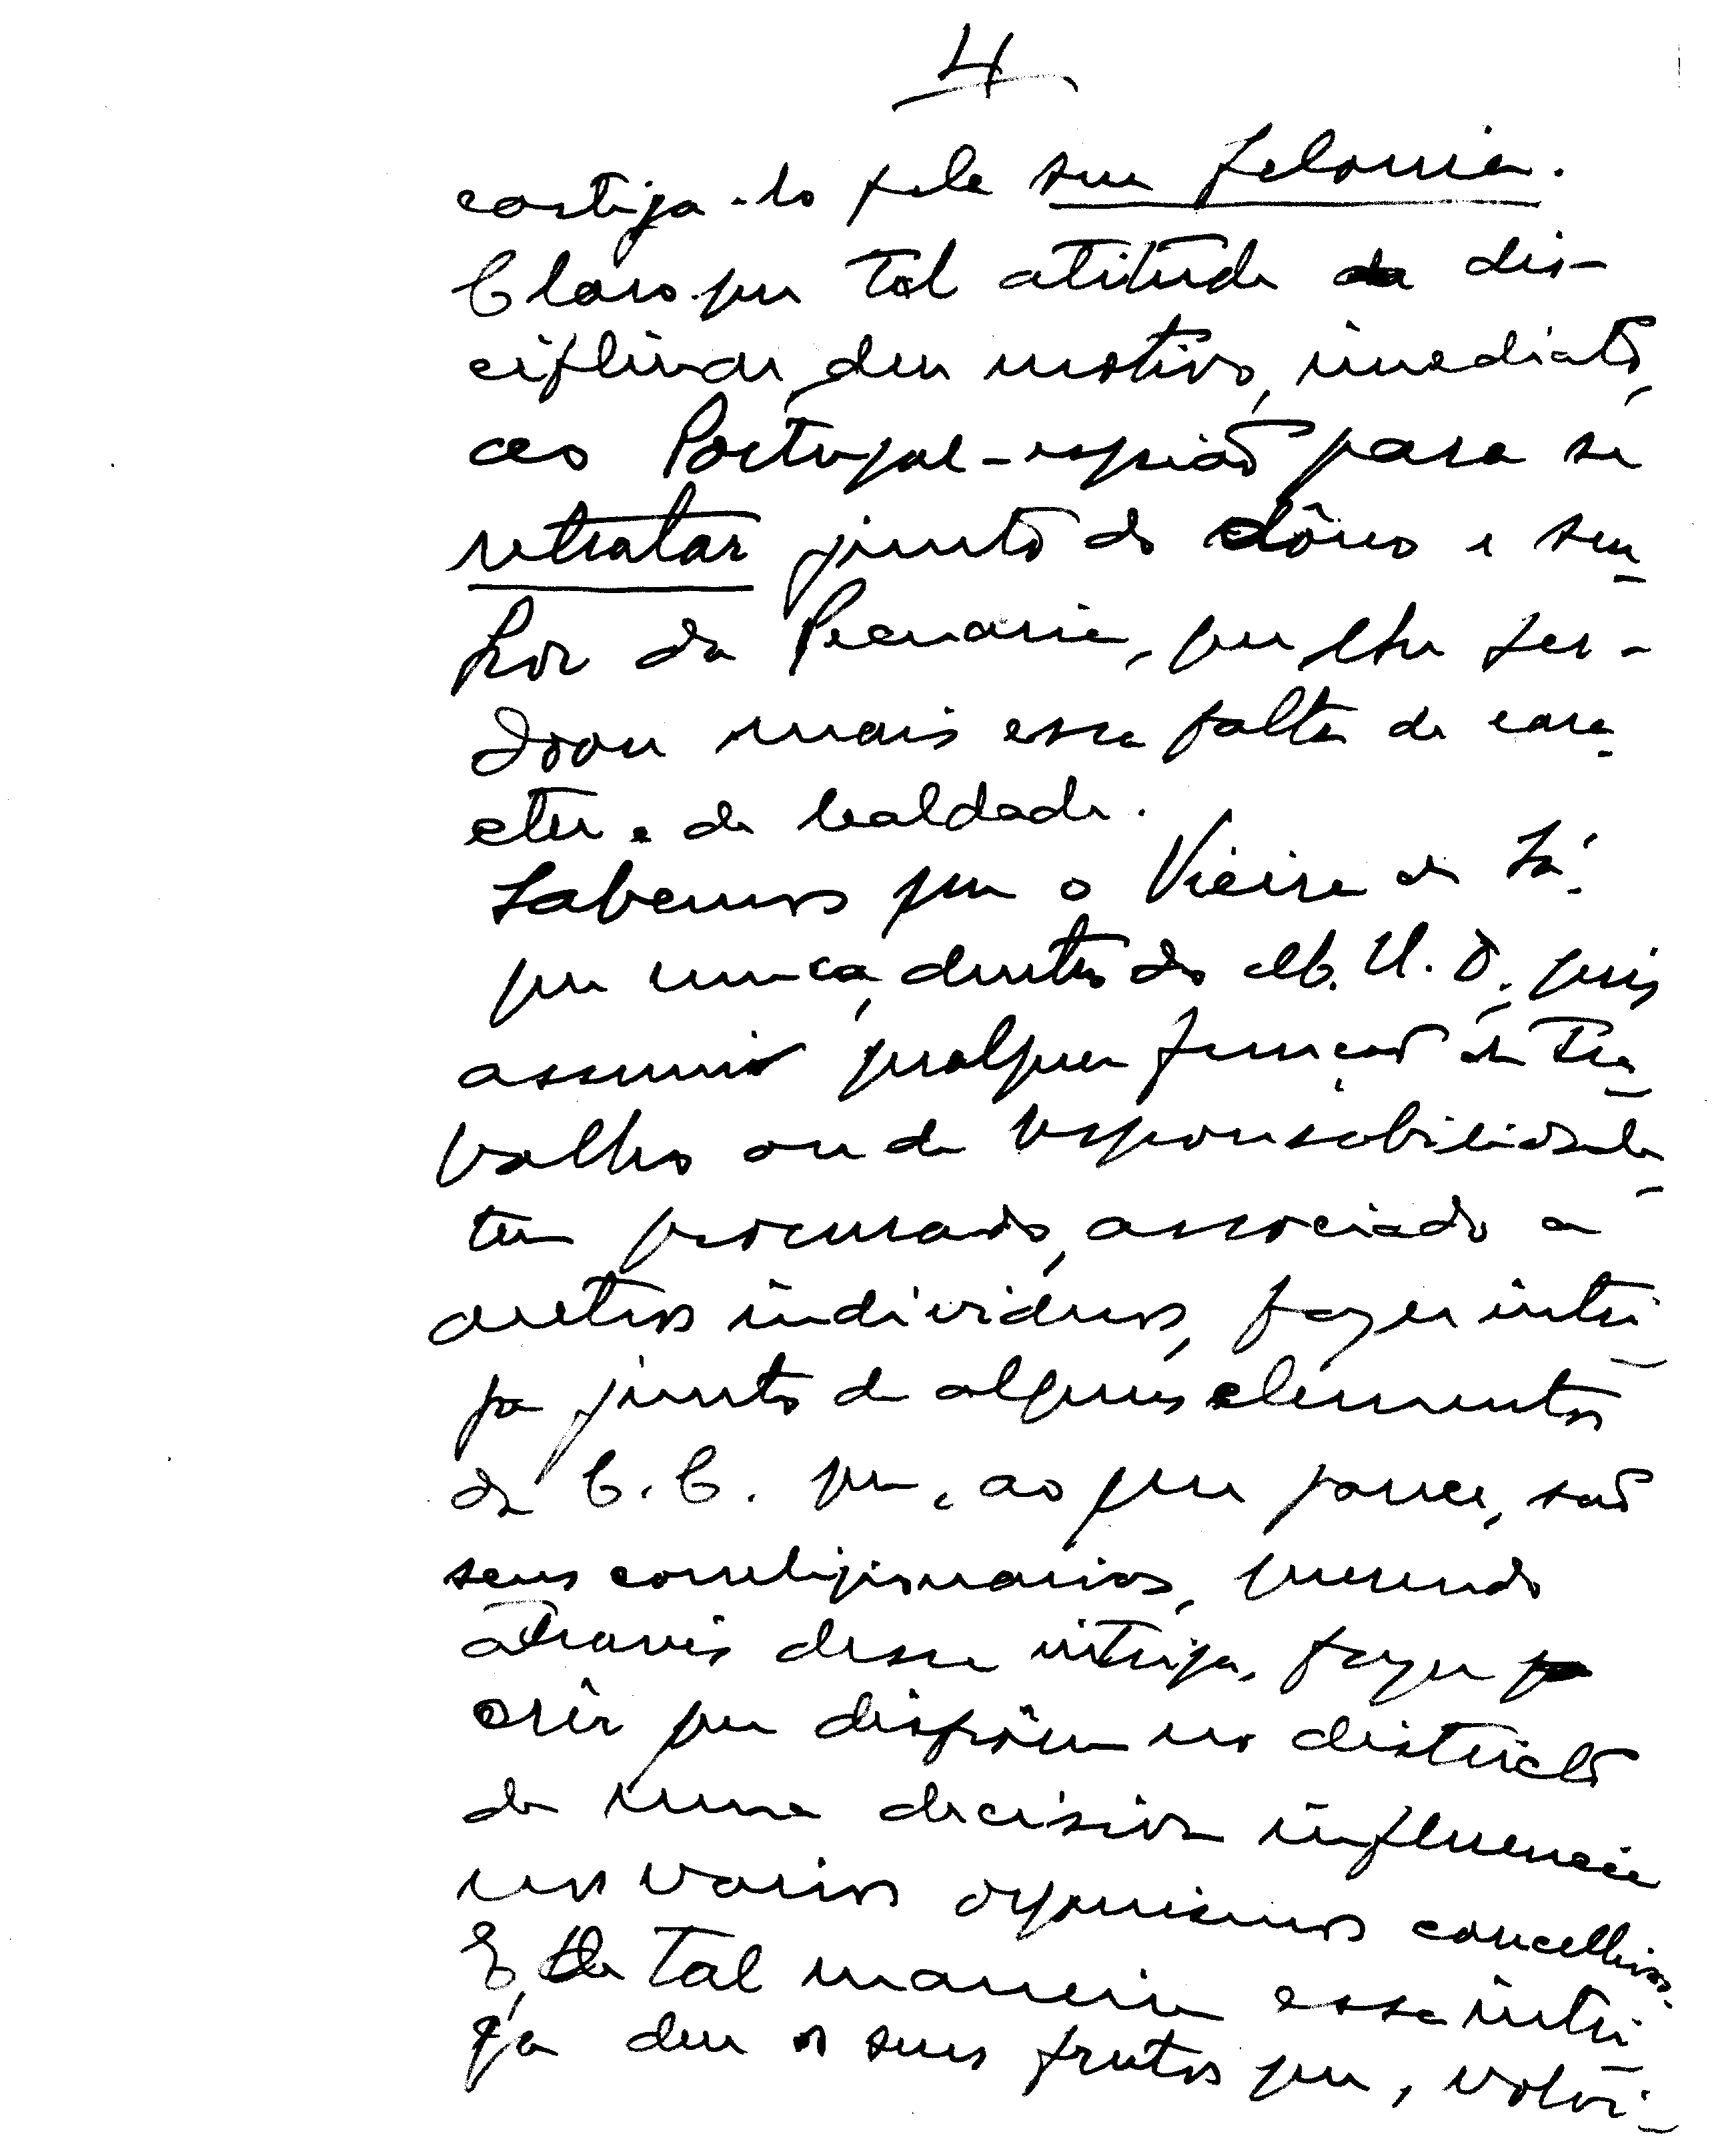 4
castiga-lo pela sua felonia.
Claro que tal atitude dis-
ciplinar, deu motivo, imediato,
ao Portugal-espião para se
retratar junto do dôno e sen-
hor da Pecuaria, que lhe per-
doou mais essa falta de cara-
cter e de lealdade.
Sabemos que o Vieira de Sá,
que nunca, dentro do M.U.D., quis
assumir qualquer funcão de tra-
balho ou de responsabilidade,
tem procurado, associado a
outros individuos, fazer intri-
ga junto de alguns elementos
da C.C. que, ao que parece, são
seus correligionarios, querendo
através dessa intriga, fazer
crêr que dispõem no districto
de uma decisiva influencia
nos varios organismos concelhios.
E, de tal maneira essa intri-
ga deu os seus frutos que, volvi-